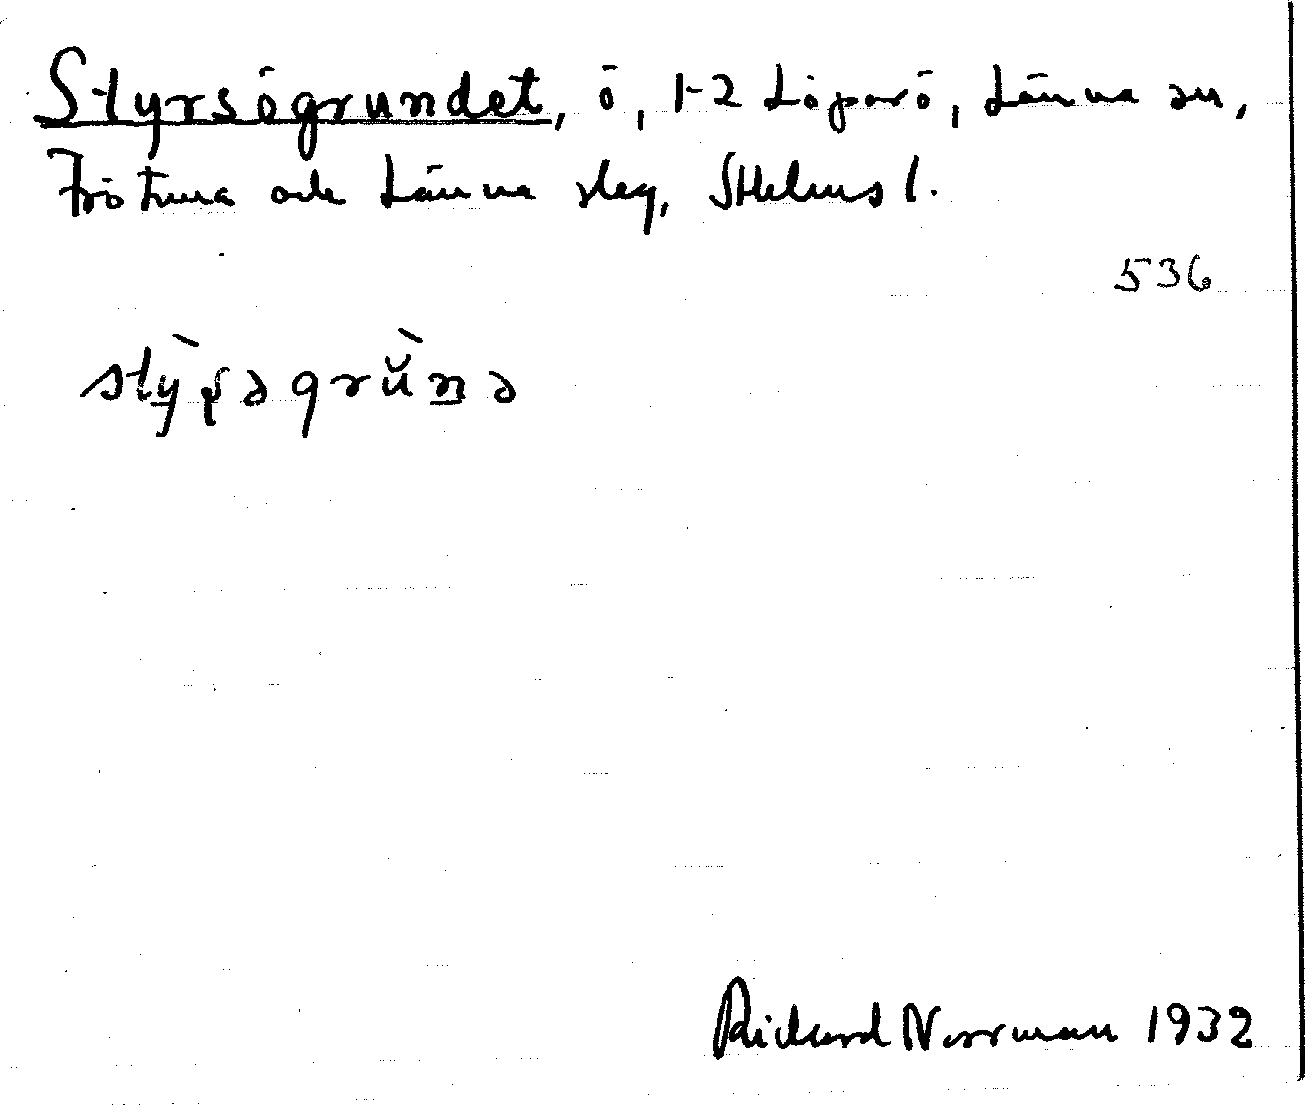 Styrsögrundet, ö, 1-2 Löparö, Länna sn,
Frötuna och Länna slag, Sthlms l.
536
stỳʂəgrŭ̀nə
Rickard Norrman 1932